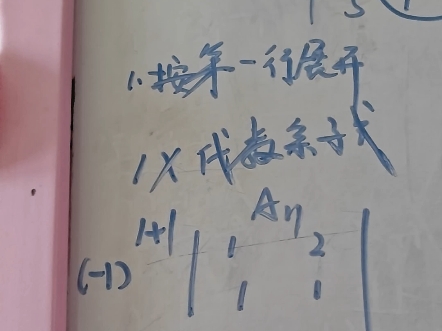 1.按第一行展开
1×代数余子式
A11
(-1)1+1 | 1 2 |
1 1